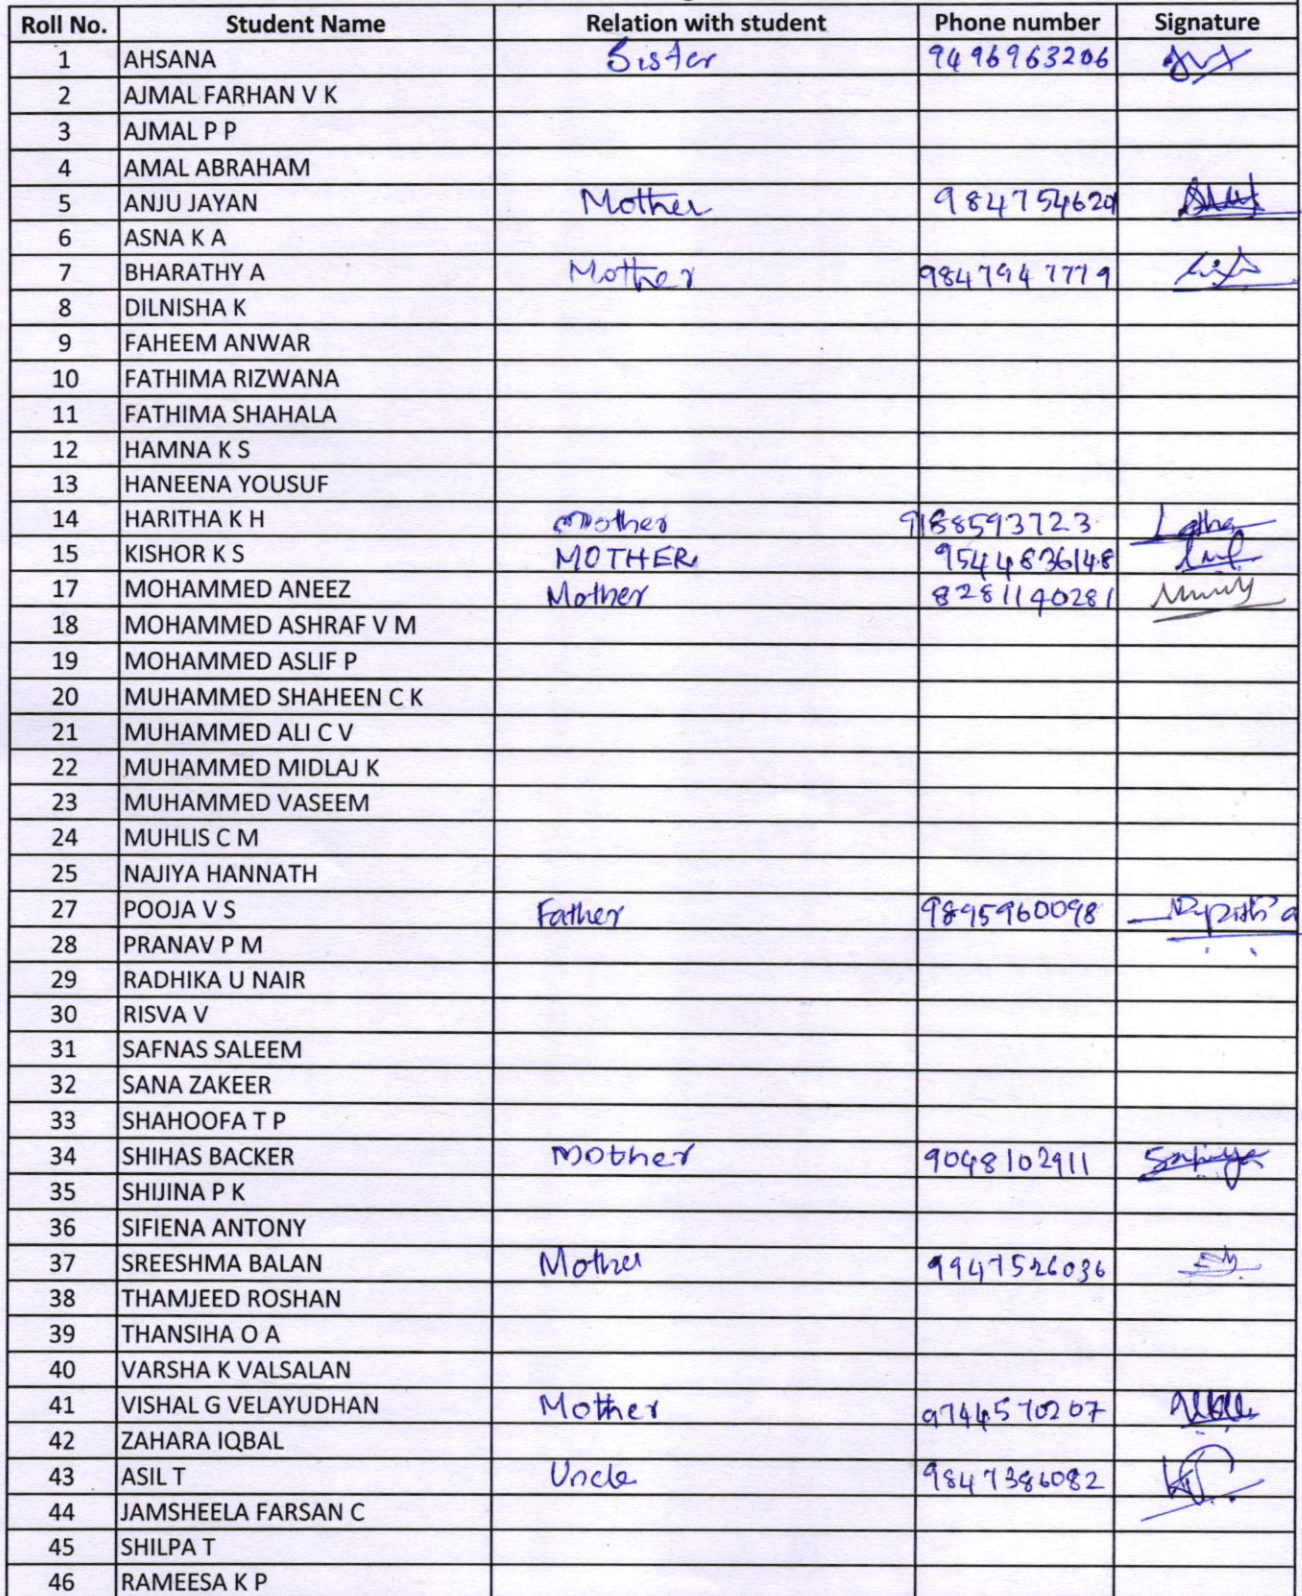 Roll No. Student Name Relation with student Phone number Signature
1 AHSANA Sister 9496963206
2 AJMAL FARHAN V K
3 AJMAL P P
4 AMAL ABRAHAM
5 ANJU JAYAN Mother
6 ASNA K A
7 BHARATHY A Mother 9847947779
8 DILNISHA K
9 FAHEEM ANWAR
10 FATHIMA RIZWANA
11 FATHIMA SHAHALA
12 HAMNA K S
13 HANEENA YOUSUF
14 HARITHA K H Mother 9188593723 Latha
15 KISHOR K S MOTHER 9544836148
17 MOHAMMED ANEEZ Mother 8281140281
18 MOHAMMED ASHRAF V M
19 MOHAMMED ASLIF P
20 MUHAMMED SHAHEEN C K
21 MUHAMMED ALI C V
22 MUHAMMED MIDLAJ K
23 MUHAMMED VASEEM
24 MUHLIS C M
25 NAJIYA HANNATH
27 POOJA V S Father 9895960098
28 PRANAV P M
29 RADHIKA U NAIR
30 RISVA V
31 SAFNAS SALEEM
32 SANA ZAKEER
33 SHAHOOFA T P
34 SHIHAS BACKER Mother 9048102911
35 SHIJINA P K
36 SIFIENA ANTONY
37 SREESHMA BALAN Mother 9947526036
38 THAMJEED ROSHAN
39 THANSIHA O A
40 VARSHA K VALSALAN
41 VISHAL G VELAYUDHAN Mother 9744570207
42 ZAHARA IQBAL
43 ASIL T Uncle 9847386082
44 JAMSHEELA FARSAN C
45 SHILPA T
46 RAMEESA K P